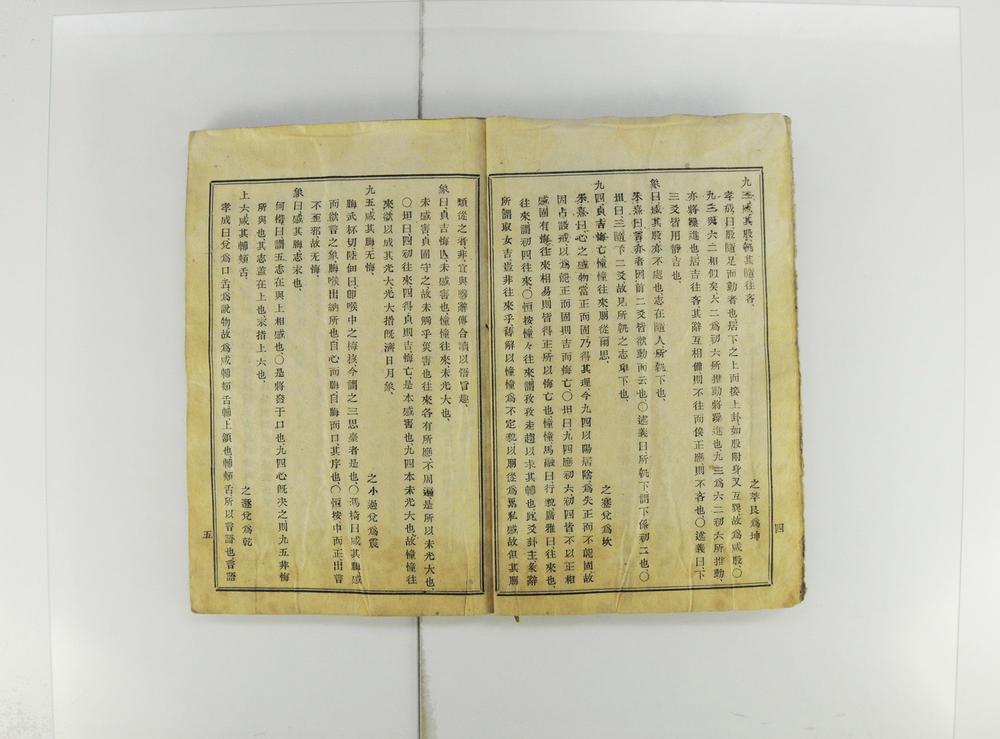 九三咸其股執其隨往吝、 之萃艮爲坤
孝成曰股隨足而動者也居下之上而接上卦如股附身又互巽故爲咸股〇
九三與六二相似矣六二爲初六所推動將躁進也九三爲六二初六所推動、
亦將躁進也居吉往吝其辭互相備則不往而俟正應則不吝也〇述義曰下
三爻皆用靜吉也、
象曰咸其股亦不處也志在隨人所執下也、
朱熹曰言亦者因前二爻皆欲動而云也、〇述義曰所執下謂下係初二也、〇
坦曰三隨下二爻故見所執之志卑下也、
九四貞吉悔亡憧憧往來朋從爾思、 之蹇兌爲坎
朱熹曰心之感物當正而固乃得其理今九四以陽居陰爲失正而不能固故
因占設戒以爲能正而固則吉而悔亡〇坦曰九四應初六初四皆不以正相
感固有悔往來相易則皆得正所以悔亡也憧憧馬融曰行貌廣雅曰往來也、
往來謂初四往來、〇恒按憧々往來謂孜孜走趨以求其輔也此爻卦主彖辭
所謂取女吉豈非往來乎舊解以憧憧爲不定貌以朋從爲累私感故但其朋
四
類從之者非、宜與繫辭傳合讀以悟旨趣、
象曰貞吉悔亡、未感害也憧憧往來、未光大也、
未感害貞固守之故未觸乎災害也往來各有所應、不周遍是所以未光大也、
〇坦曰四初往來四得貞則吉悔亡、是本感害也、九四本未光大也、故憧憧往
來欲以成其光大光大指既濟日月象、
九五咸其脢无悔、 之小過兌爲震
脢武杯切陸佃曰、卽喉中之梅核今謂之三思臺者是也〇馮椅曰咸其脢感
而欲言之象脢喉出納所也自心而脢自脢而口、其序也、〇恒按中而正出言
不至邪故无悔、
象曰咸其脢志末也、
何楷曰謂五志在與上相感也、〇是將發于口也、九四心既決之則九五非悔
所與也其志蓋在上也末指上六也、
上六咸其輔頰舌、 之遯兌爲乾
孝成曰兌爲口舌爲說物故爲咸輔頰舌輔上頷也輔頰舌所以言語也、言語
五